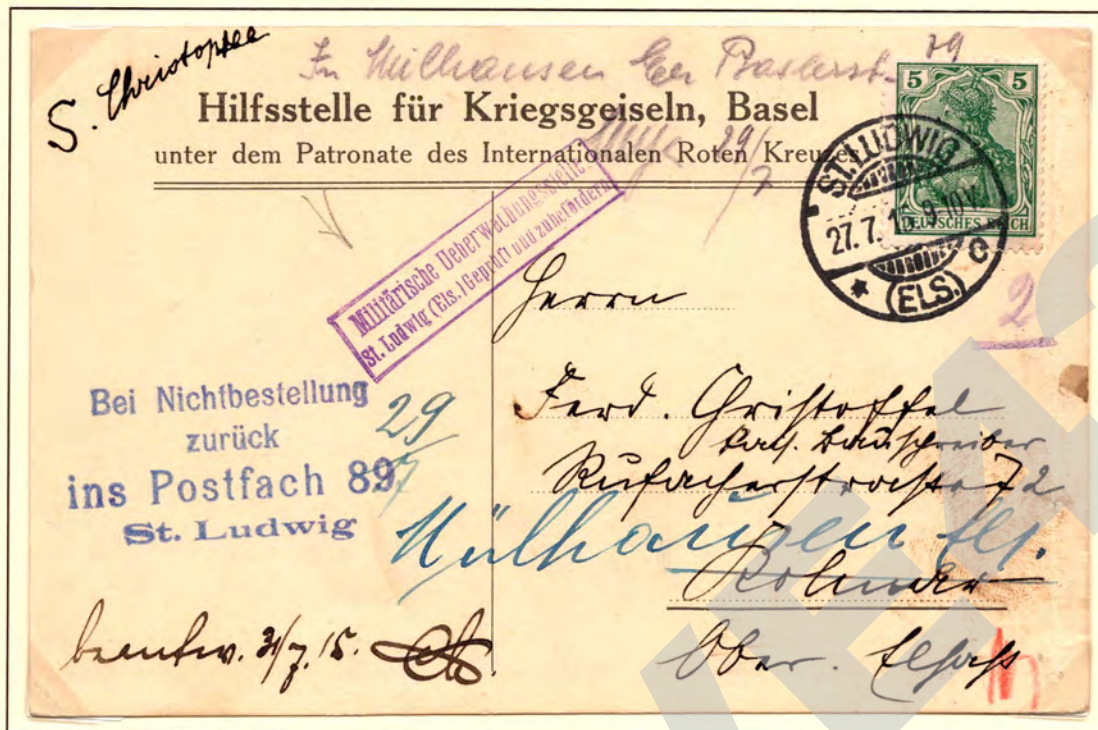 S. Christophel
In Mülhausen Els Baslerst. 79
Hilfsstelle für Kriegsgeiseln, Basel
unter dem Patronate des Internationalen Roten Kreuzes
29/7
5 5
DEUTSCHES REICH
ST. LUDWIG
27.7.15 9-10V.
c
* (ELS.)
Militärische Ueberwachungsstelle
St. Ludwig (Els.) Geprüft und zu befördern
2
Herrn
Bei Nichtbestellung
zurück
ins Postfach 89
St. Ludwig
29/7
Ferd. Christoffel
kais. Bauschreiber
Rufacherstrasse 72
Mülhausen Els.
Kolmar
Ober. Elsass
beantw. 31/7. 15.